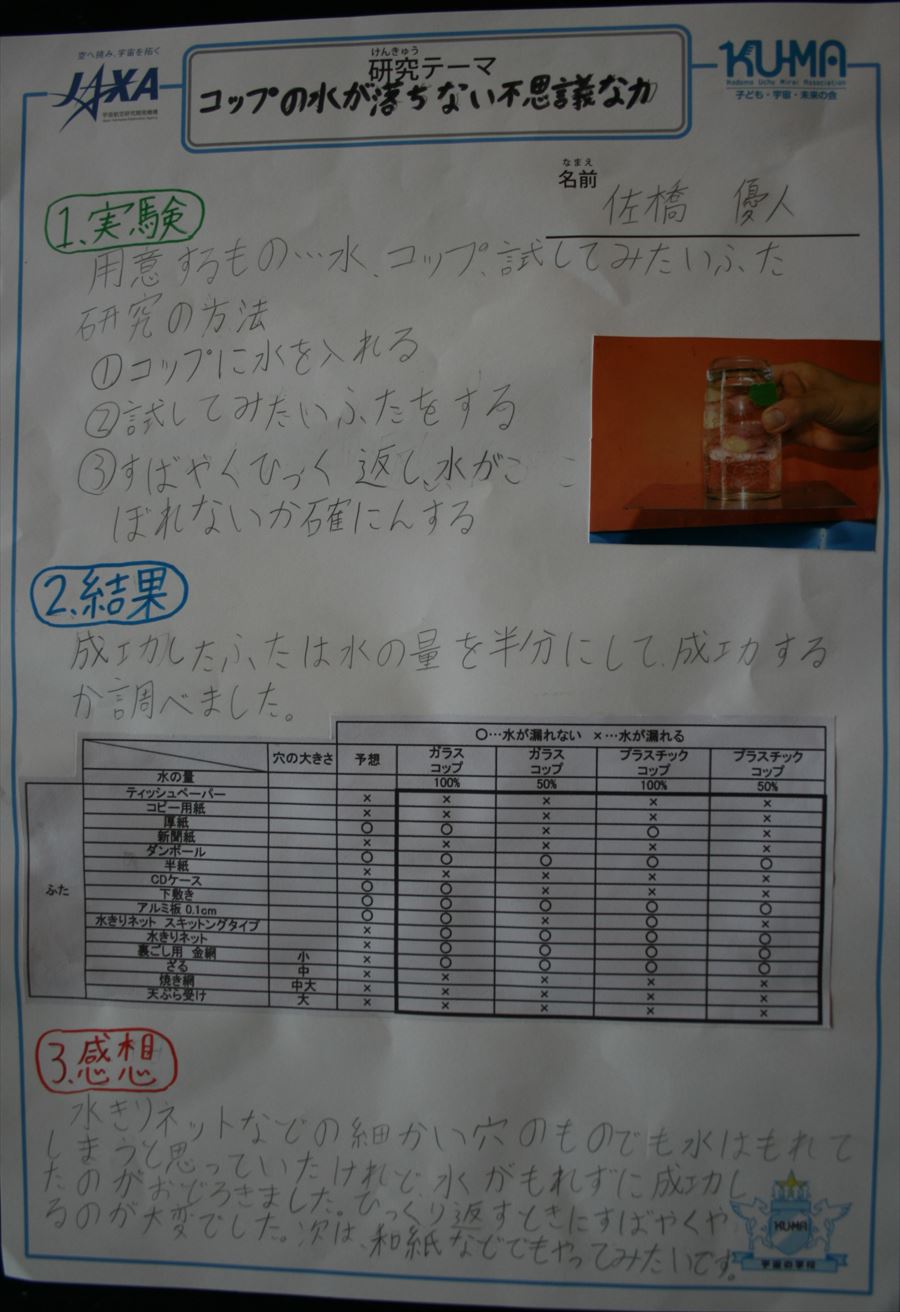 空へ挑み、宇宙を拓く
JAXA
けんきゅう
研究テーマ
コップの水が落ちない不思議な力
KUMA
Kodomo Uchu Mirai Association
子ども・宇宙・未来の会
なまえ
名前 佐橋 優人
1.実験
用意するもの…水、コップ、試してみたいふた
研究の方法
①コップに水を入れる
②試してみたいふたをする
③すばやくひっく返し、水がこ こ
ぼれないか確にんする
2.結果
成功したふたは水の量を半分にして、成功する
か調べました。
〇…水が漏れない ×…水が漏れる
水の量 穴の大きさ 予想 ガラスコップ 100% ガラスコップ 50% プラスチックコップ 100% プラスチックコップ 50%
ふた
ティッシュペーパー × × × × ×
コピー用紙 × × × × ×
厚紙 〇 〇 × 〇 ×
新聞紙 × × × × ×
ダンボール 〇 〇 〇 〇 〇
半紙 × × × × ×
CDケース 〇 〇 × × ×
下敷き 〇 〇 〇 〇 〇
アルミ板 0.1cm 〇 〇 × 〇 〇
水きりネット スキットングタイプ × 〇 〇 〇 〇
水きりネット × 〇 〇 〇 〇
裏ごし用 金網 小 × 〇 〇 〇 〇
ざる 中 × × × × ×
焼き網 中大 × × × × ×
天ぷら受け 大 × × × × ×
3.感想
水きりネットなどの細かい穴のものでも水はもれて
しまうと思っていたけれど、水がもれずに成功し
たのがおどろきました。ひっくり返すときにすばやくや
るのが大変でした。次は、和紙などでもやってみたいです。
KUMA
宇宙の学校